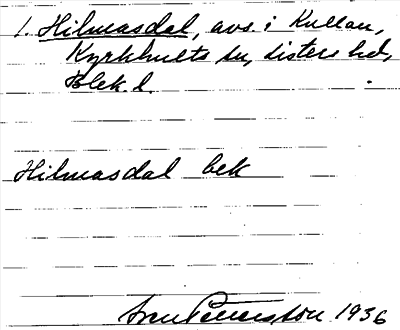 1. Hilmasdal, avs. i Kullan,
Kyrkhults sn, Listers hd,
Blek. l.
Hilmasdal bek
Pettersson 1936